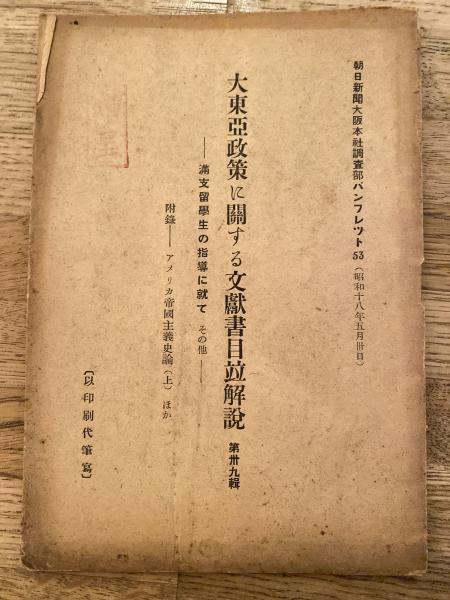 朝日新聞大阪本社調査部パンフレツト53(昭和十八年五月卅日)
大東亞政策に關する文獻書目竝解說 第卅九輯
——滿支留學生の指導に就て その他——
附錄—— アメリカ帝國主義史論(上) ほか
〔以印刷代筆寫〕